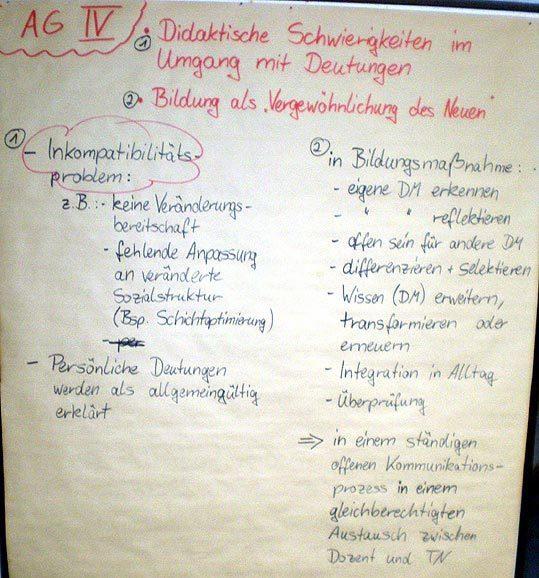 AG IV
① • Didaktische Schwierigkeiten im
Umgang mit Deutungen
② • Bildung als "Vergewöhnlichung des Neuen"
①
- Inkompatibilitäts-
problem:
z.B.: - keine Veränderungs-
bereitschaft
- fehlende Anpassung
an veränderte
Sozialstruktur
(Bsp. Schichtoptimierung)
- Persönliche Deutungen
werden als allgemeingültig
erklärt
②
in Bildungsmaßnahme:
- eigene DM erkennen
- " " reflektieren
- offen sein für andere DM
- differenzieren + selektieren
- Wissen (DM) erweitern,
transformieren oder
erneuern
- Integration in Alltag
- Überprüfung
⇒ in einem ständigen
offenen Kommunikations-
prozess in einem
gleichberechtigten
Austausch zwischen
Dozent und TN